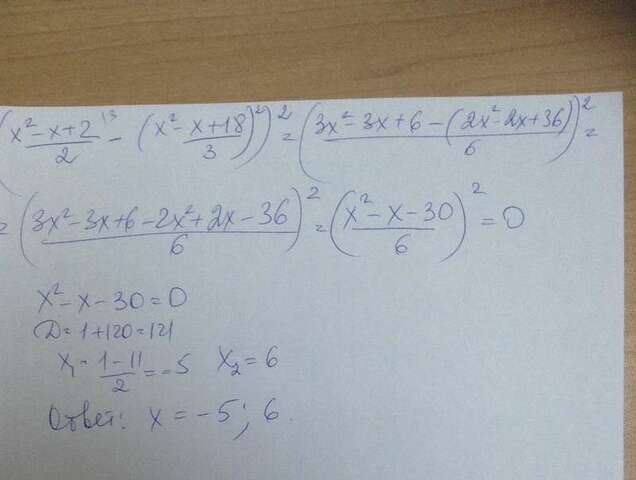 ((x²-x+2)/2 ^(3 - (x²-x+18)/3 ^(2)² = ((3x²-3x+6-(2x²-2x+36))/6)² =
= ((3x²-3x+6-2x²+2x-36)/6)² = ((x²-x-30)/6)² = 0
x²-x-30=0
D=1+120=121
x₁=(1-11)/2=-5 x₂=6
Ответ: x=-5; 6.